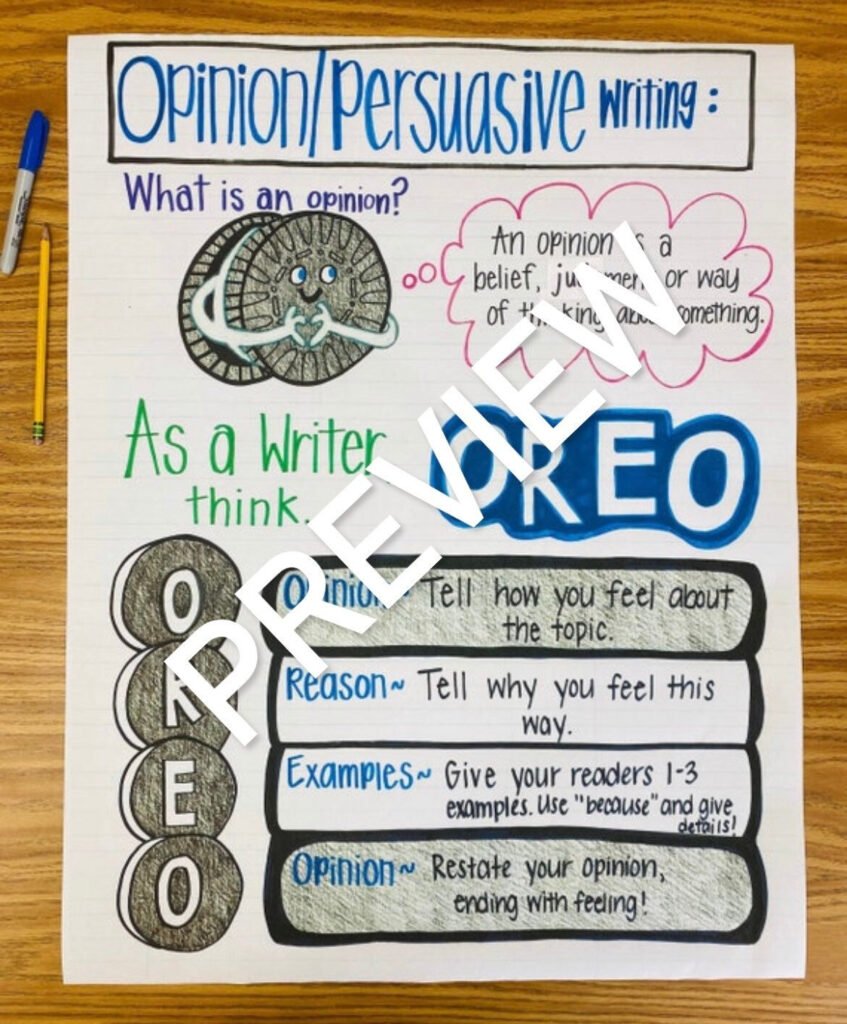 Opinion/Persuasive Writing:
What is an opinion?
An opinion is a
belief, judgment or way
of thinking about something.
As a Writer,
think.
OREO
O
R
E
O
Opinion~ Tell how you feel about
the topic.
Reason~ Tell why you feel this
way.
Examples~ Give your readers 1-3
examples. Use "because" and give
details!
Opinion~ Restate your opinion,
ending with feeling!
PREVIEW